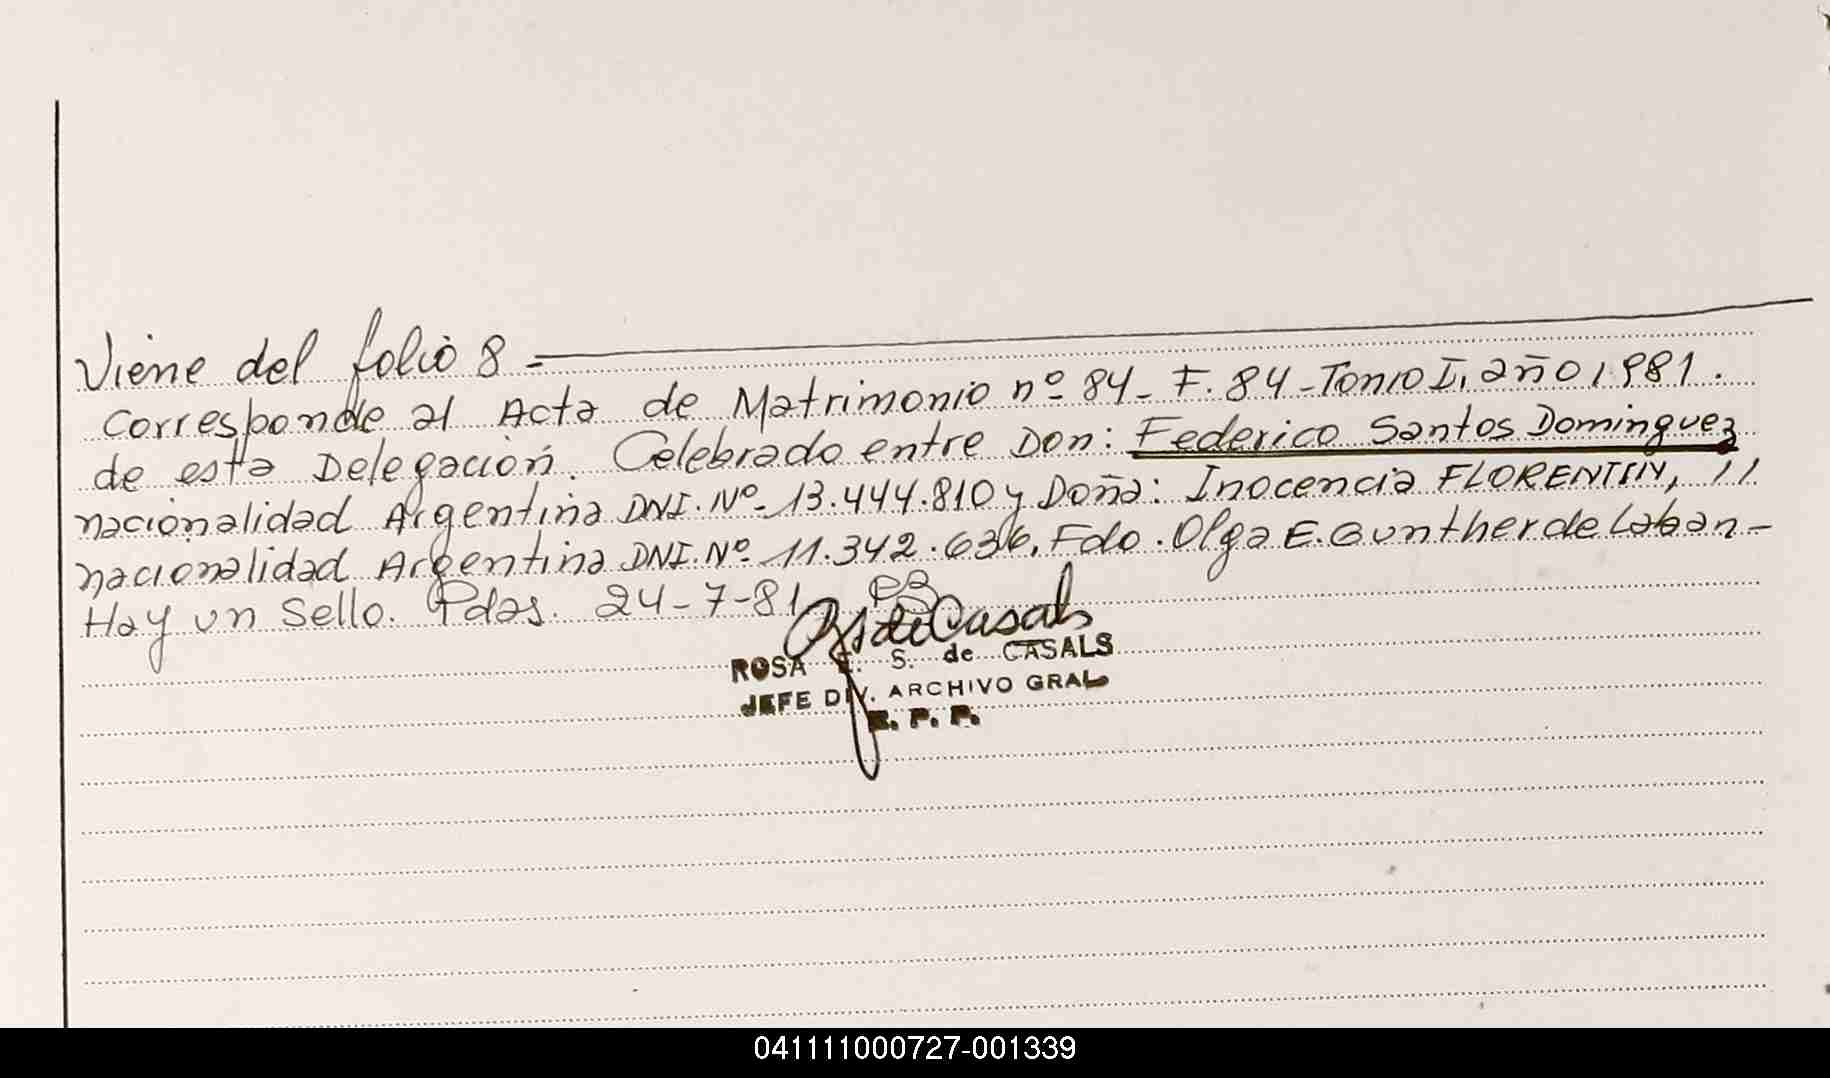 Viene del folio 8 =
Corresponde al Acta de Matrimonio nº 84_ F. 84-Tomo I, año 1981.
de esta Delegación. Celebrado entre Don: Federico Santos Dominguez
nacionalidad Argentina DNI. Nº_ 13.444.810 y Doña: Inocencia FLORENTIN, //
nacionalidad Argentina DNI. Nº_ 11.342.636. Fdo. Olga E. Gunther de Laban-
Hay un Sello. Pdas. 24-7-81
ROSA E. S. de CASALS
JEFE DIV. ARCHIVO GRAL
R. P. P.
041111000727-001339